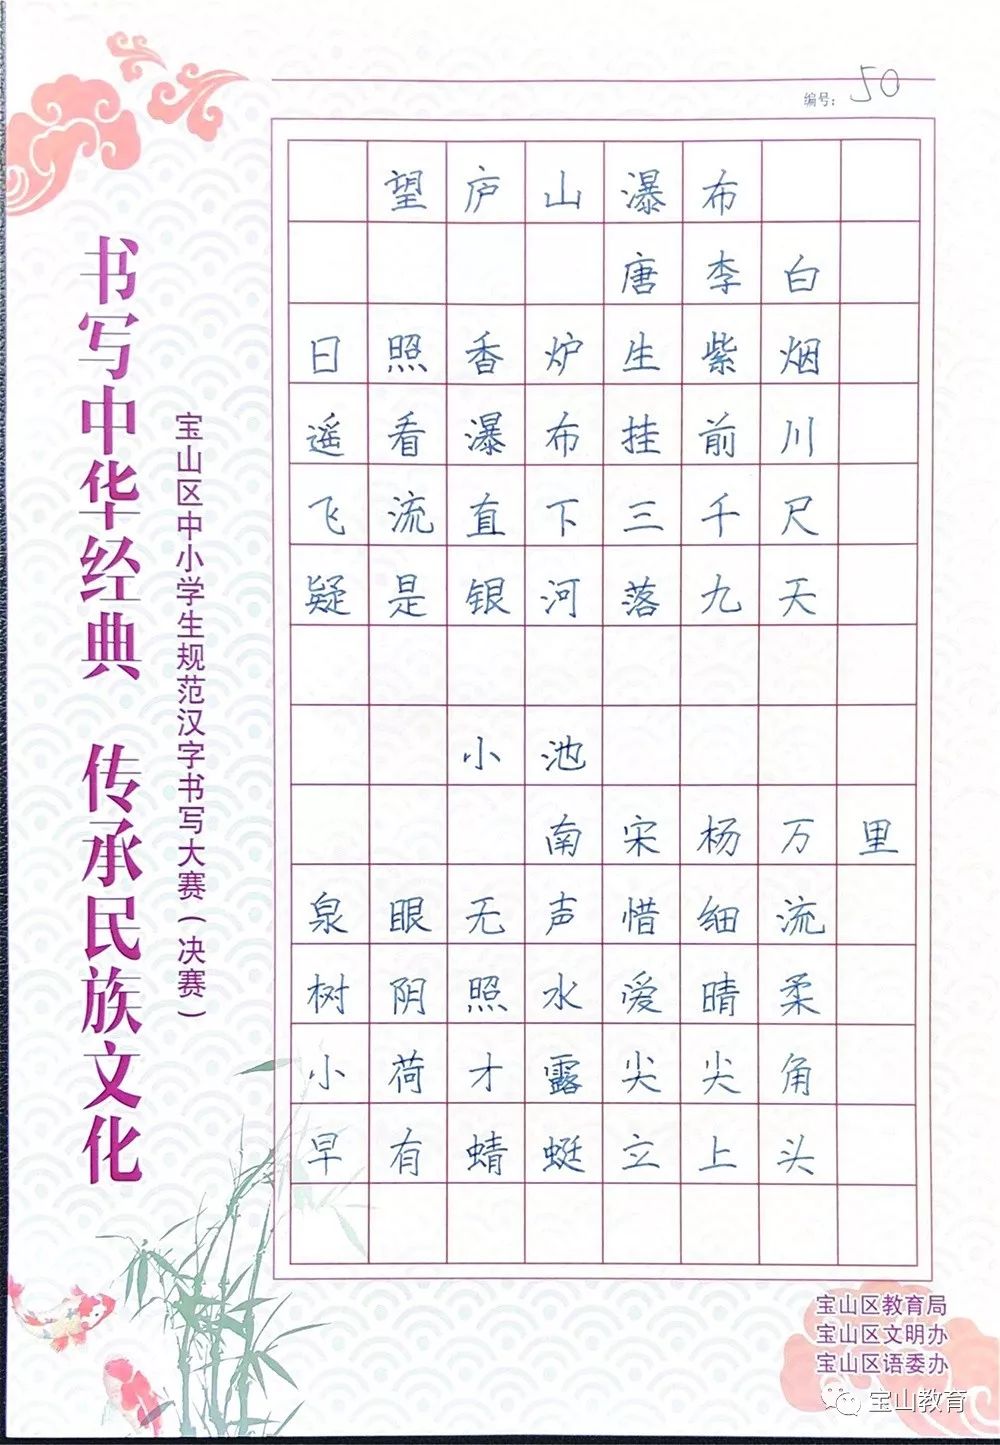 编号：50
书写中华经典 传承民族文化
宝山区中小学生规范汉字书写大赛（决赛）
望庐山瀑布
唐李白
日照香炉生紫烟
遥看瀑布挂前川
飞流直下三千尺
疑是银河落九天
小池
南宋杨万里
泉眼无声惜细流
树阴照水爱晴柔
小荷才露尖尖角
早有蜻蜓立上头
宝山区教育局
宝山区文明办
宝山区语委办
宝山教育